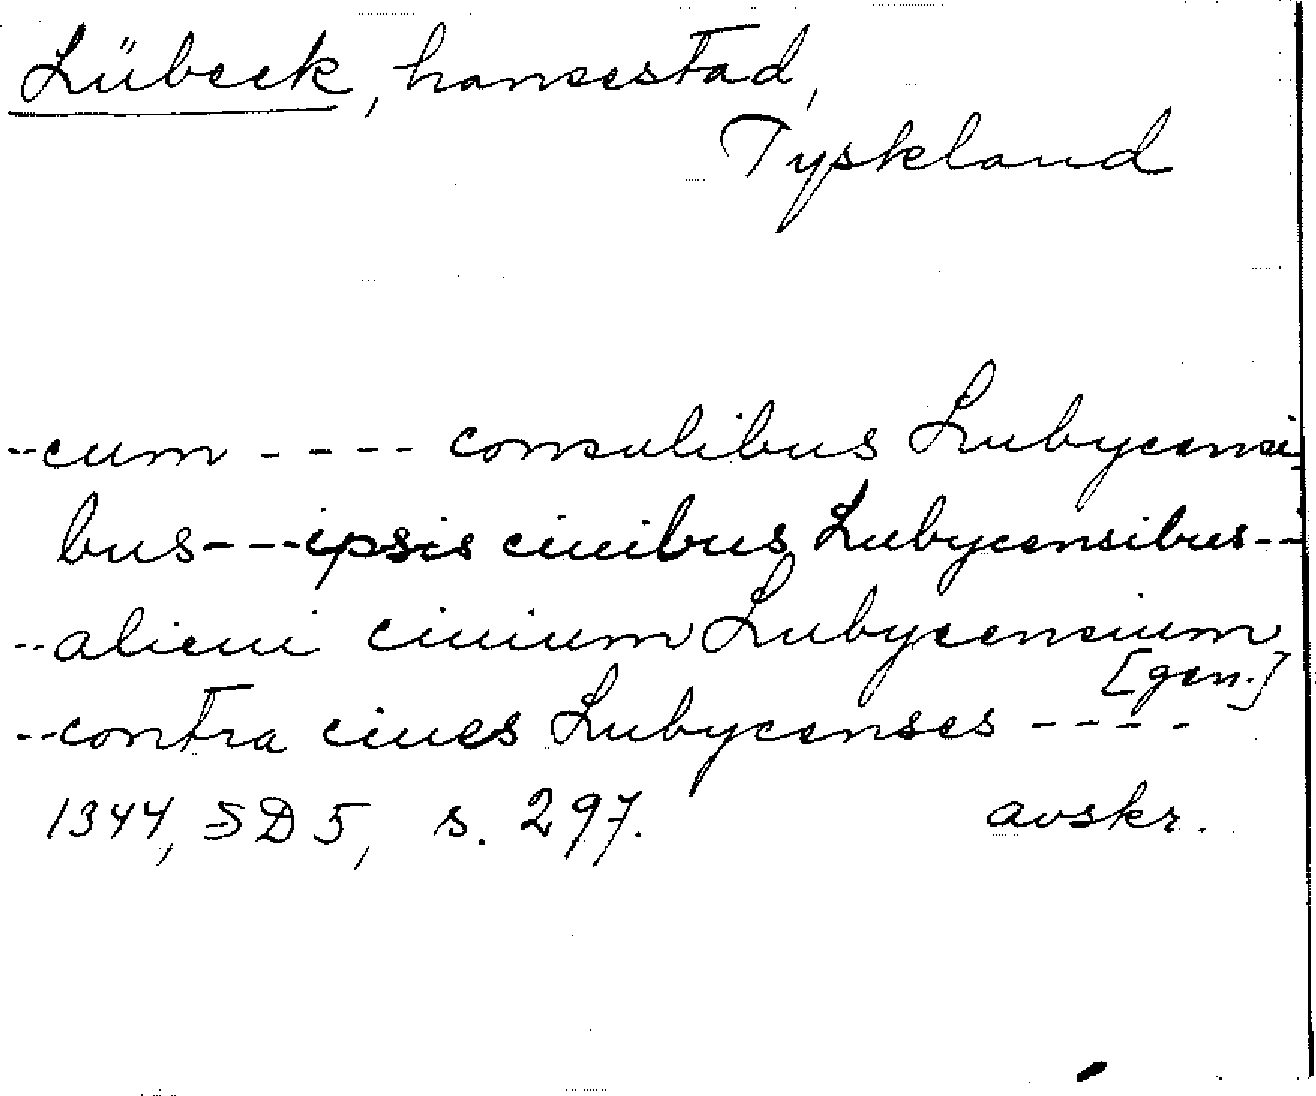 Lübeck, hansestad,
Tyskland
--cum ---- consulibus Lubycensi
bus---ipsis ciuibus Lubycensibus--
--alicui ciuium Lubycensium
[gen.]
--contra ciues Lubycenses ----
1344, SD 5, s. 297. avskr.